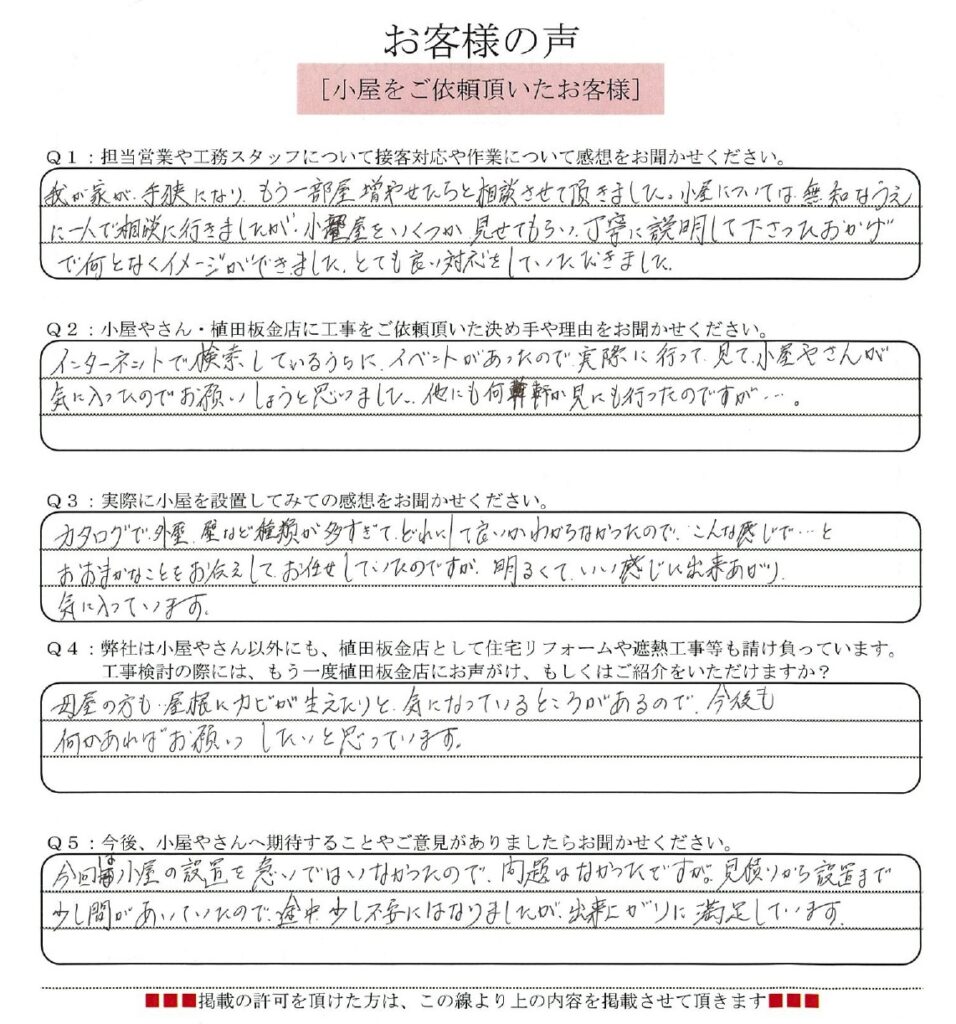 お客様の声
[小屋をご依頼頂いたお客様]
Q1：担当営業や工務スタッフについて接客対応や作業について感想をお聞かせください。
我が家が、手狭になり、もう一部屋増やせたらと相談させて頂きました。小屋については、無知なうえ
に一人で相談に行きましたが、小屋をいくつか見せてもらい、丁寧に説明して下さったおかげ
で何となくイメージができました。とても良い対応をしていただきました。
Q2：小屋やさん・植田板金店に工事をご依頼頂いた決め手や理由をお聞かせください。
インターネットで検索しているうちに、イベントがあったので実際に行って、見て、小屋やさんが
気に入ったのでお願いしようと思いました。他にも何軒か見にも行ったのですが…。
Q3：実際に小屋を設置してみての感想をお聞かせください。
カタログで、外壁、壁など種類が多すぎて、どれにして良いかわからなかったので、こんな感じで…と
おおまかなことをお伝えして、お任せしていたのですが、明るくて、いい感じに出来あがり、
気に入っています。
Q4：弊社は小屋やさん以外にも、植田板金店として住宅リフォームや遮熱工事等も請け負っています。
工事検討の際には、もう一度植田板金店にお声がけ、もしくはご紹介をいただけますか？
母屋の方も、屋根にカビが生えたりと、気になっているところがあるので、今後も
何かあればお願いしたいと思っています。
Q5：今後、小屋やさんへ期待することやご意見がありましたらお聞かせください。
今回は小屋の設置を急いではいなかったので、問題はなかったですが、見積りから設置まで
少し間があいていたので、途中、少し不安にはなりましたが、出来上がりに満足しています。
■■■掲載の許可を頂けた方は、この線より上の内容を掲載させて頂きます■■■